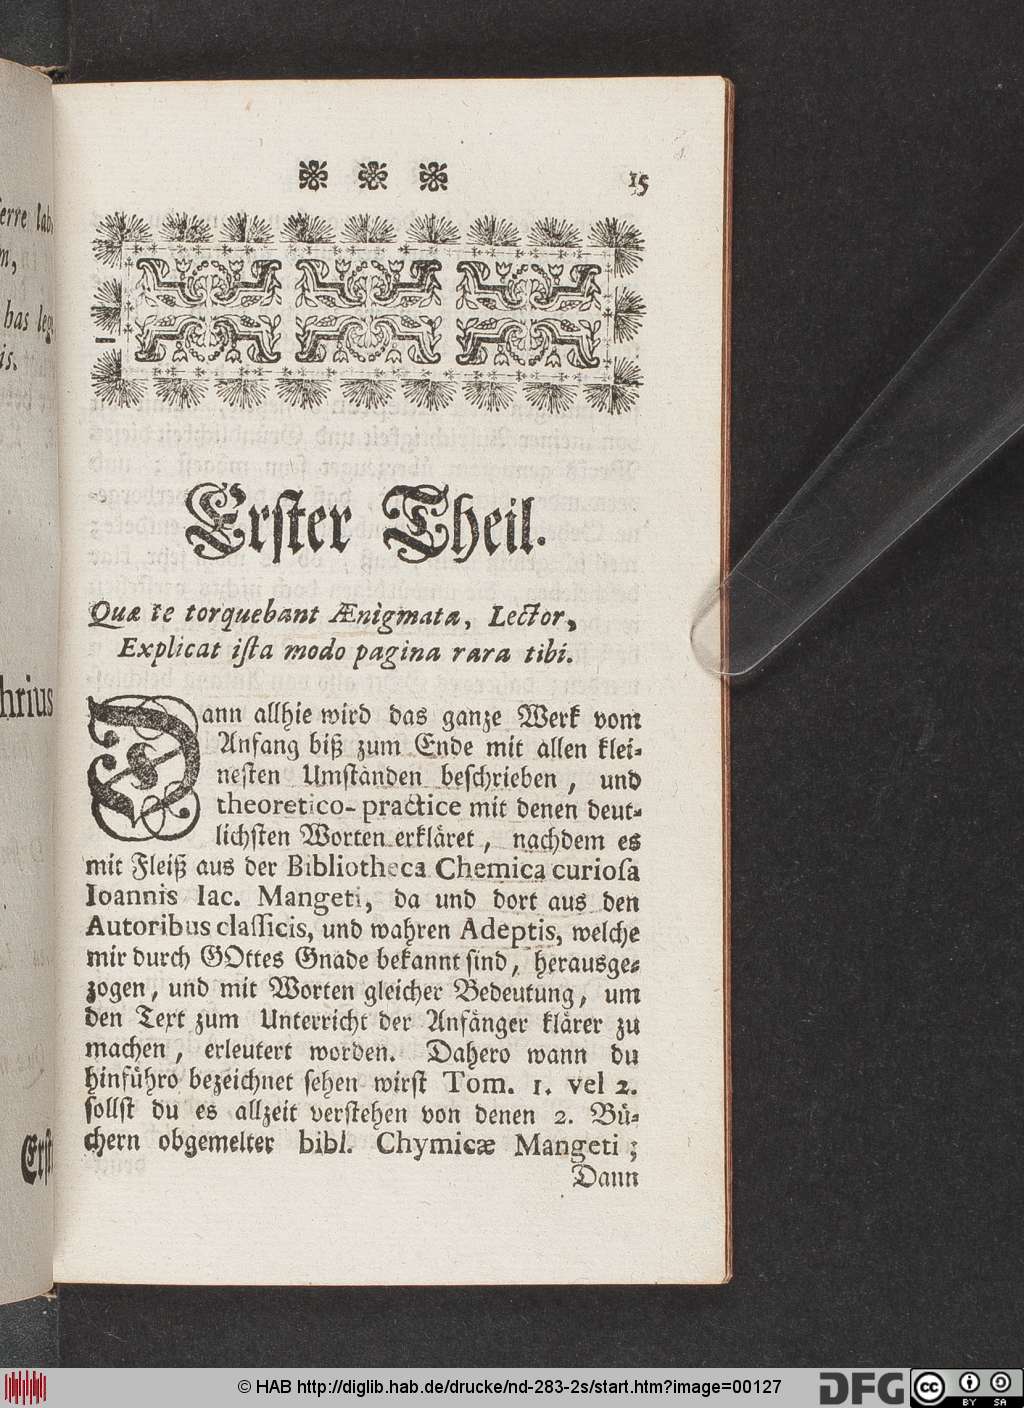 15
Erster Theil.
Quæ te torquebant Ænigmata, Lector,
Explicat iſta modo pagina rara tibi.
Dann allhie wird das ganze Werk vom
Anfang biß zum Ende mit allen klei-
neſten Umſtänden beſchrieben, und
theoretico-practice mit denen deut-
lichſten Worten erkläret, nachdem es
mit Fleiß aus der Bibliotheca Chemica curioſa
Ioannis Iac. Mangeti, da und dort aus den
Autoribus claſſicis, und wahren Adeptis, welche
mir durch GOttes Gnade bekannt ſind, herausge-
zogen, und mit Worten gleicher Bedeutung, um
den Text zum Unterricht der Anfänger klärer zu
machen, erleutert worden. Dahero wann du
hinführo bezeichnet ſehen wirſt Tom. 1. vel 2.
ſollſt du es allzeit verſtehen von denen 2. Bü-
chern obgemelter bibl. Chymicæ Mangeti;
Dann
ferre lab
m,
has leg
is.
hrius
Erſt
© HAB http://diglib.hab.de/drucke/nd-283-2s/start.htm?image=00127
DFG
cc
BY SA